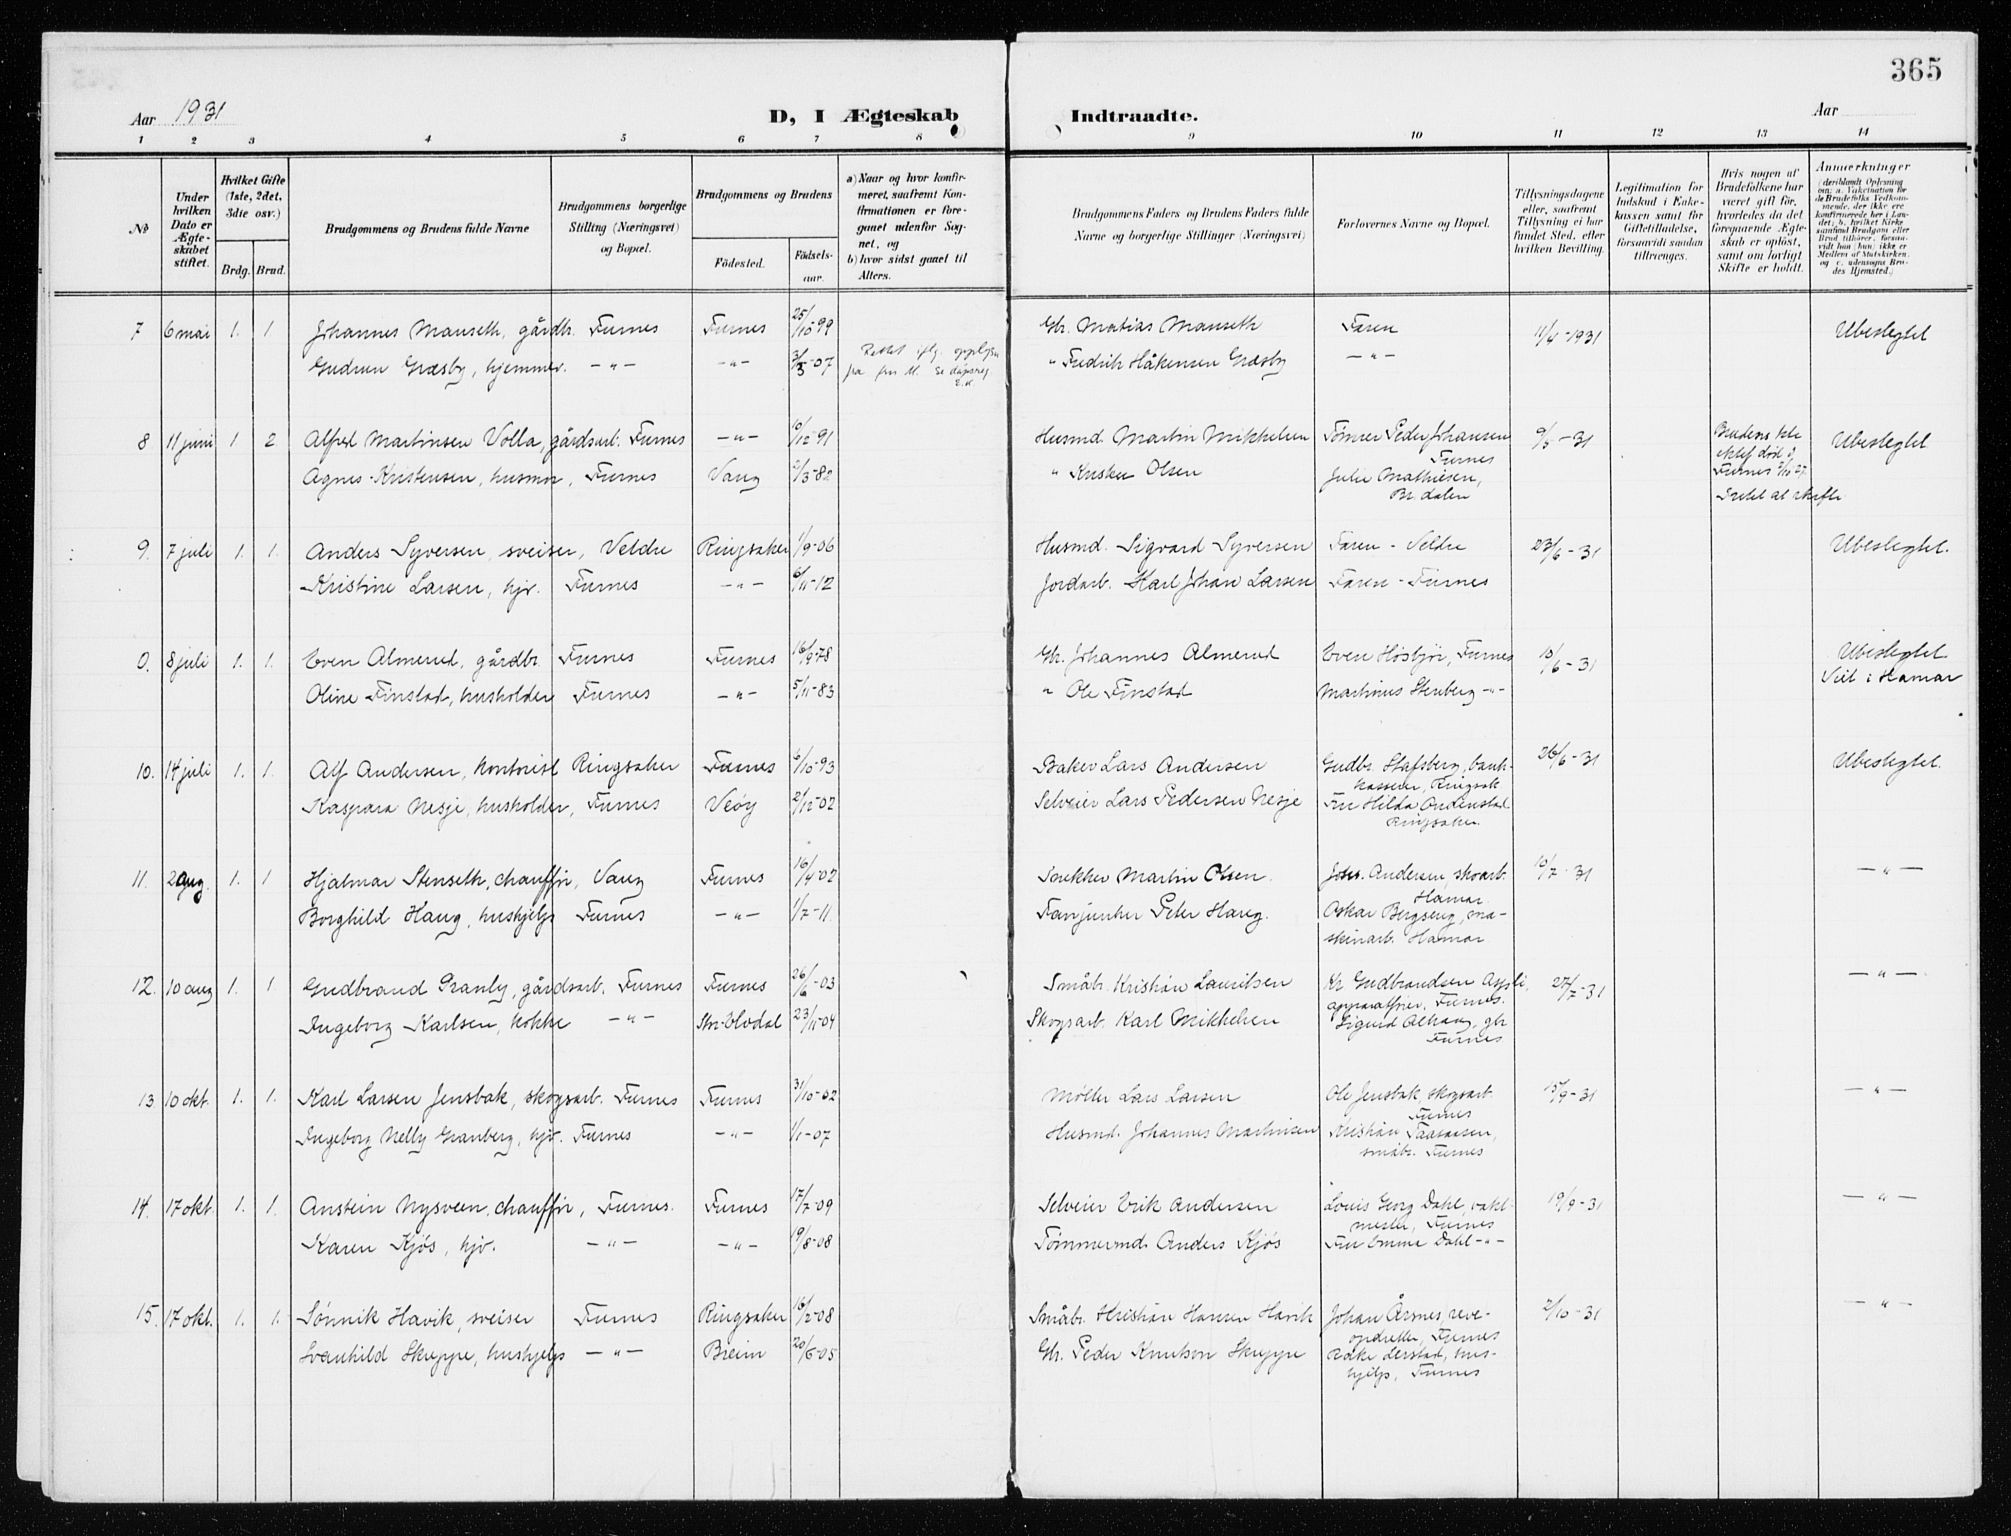 365
Aar 1931
D, I Ægteskab
Indtraadte.
Aar
1 2 3 4 5 6 7 8 9 10 11 12 13 14
No
Under hvilken Dato er Ægteskabet stiftet.
Hvilket Gifte (1ste, 2det, 3die osv.)
Brdg. Brud.
Brudgommens og Brudens fulde Navne
Brudgommens borgerlige Stilling (Næringsvei) og Bopæl.
Brudgommens og Brudens
Fødested. Fødselsaar.
a) Naar og hvor konfirmeret, saafremt Konfirmationen er foregaaet udenfor Sognet, og
b) hvor sidst gaaet til Alters.
Brudgommens Faders og Brudens Faders fulde Navne og borgerlige Stillinger (Næringsvei)
Forlovernes Navne og Bopæl.
Tillysningsdagene eller, saafremt Tillysning ei har fundet Sted, efter hvilken Bevilling.
Legitimation for Indskud i Enkekassen samt for Giftetilladelse, forsaavidt saadan tiltrænges.
Hvis nogen af Brudefolkene har været gift før, hvorledes da det foregaaende Ægteskab er opløst, samt om lovligt Skifte er holdt.
Anmærkninger
7 6 mai 1. 1 Johannes Manseth, gårdbr. Furnes Furnes 25/10-99 Gbr. Matias Manseth Faren 11/4-1931 Ubeslegtet
Gudrun Græsby, hjemmev. -"- -"- 3/3-07 Rettet iflg. " Fredrik Håkensen Græsby -"-
8 11 juni 1 2 Alfred Martinsen Volla, gårdsarb. Furnes -"- 10/12-91 Husmd. Martin Mikkelsen Tømrer Peder Johansen Furnes 9/5-31 Ubeslegtet
Agnes Kristensen, husmor, Furnes Vang 2/3-82 " Olsen Julie Mathiesen,
9. 7 juli 1. 1. Anders Syversen, sveiser, Veldre Ringsaker 1/9-06 Husmd. Sigvard Syversen Faren - Veldre 23/6-31 Ubeslegtet.
Kristine Larsen, hjv. Furnes -"- 6/11-12 Jordarb. Karl Johan Larsen Faren - Furnes
0. 8 juli 1. 1. Even Almerud, gårdbr. Furnes Furnes 16/9-78 Gbr. Johannes Almerud Even Høsbjør, Furnes 10/6-31 Ubeslegtet.
Oline Finstad, husholder Furnes -"- 5/11-83 " Ole Finstad Martinus Stenberg -"- Viet i Hamar
10. 14 juli 1. 1. Alf Andersen, kontorist Ringsaker Furnes 6/10-93 Baker Lars Andersen Gudbr. Stafsberg, bankkasserer, Ringsak. 26/6-31 Ubeslegtet.
Kaspara Nesje, husholder, Furnes Veøy 2/12-02 Selveier Lars Pedersen Nesje Fru Hilda Andenstad Ringsaker.
11. 2 aug. 1. 1 Hjalmar Stenseth, chauffør, Vang Furnes 16/4-02 Martin Olsen. Johs. Andersen, skoarb. Hamar 10/7-31 -"-
Borghild Haug, hushjelp Furnes -"- 1/7-11. Fanjunker Peter Haug. Oskar Bergseng, maskinarb. Hamar
12. 10 aug 1. 1 Gudbrand Granly, gårdsarb. Furnes Furnes 26/6-03 Småbr. Kristian Lauritsen Kr. Gudbrandsen Furnes. 27/7-31 -"-
Ingeborg Karlsen, kokke -"- Stor-Elvdal 23/11-04 Skogsarb. Karl Mikkelsen Sigurd Alhaug, gbr Furnes
13 10 okt. 1. 1. Karl Larsen Jensbak, skogsarb. Furnes Furnes 31/10-02 Møller Lars Larsen Ole Jensbak, skogsarb. Furnes 15/9-31 -"-
Ingeborg Nelly Granberg, hjv. Furnes -"- 1/1-07 Husmd. Johannes Martinsen Kristian småbr. Furnes
14. 17 okt. 1. 1. Anstein Nysveen, chauffør, Furnes. Furnes 17/7-09 Selveier Erik Andersen Louis Georg Dahl, vaktmester, Furnes 19/9-31 -"-
Karen Kjøs, hjv. -"- -"- 19/8-08 Tømmermd. Anders Kjøs Fru Emma Dahl -"-
15. 17 okt. 1. 1. Sønnik Havik, sveiser Furnes Ringsaker 16/2-08 Småbr. Kristian Hansen Havik Johan Årsnes, reveopdretter, Furnes 2/10-31 -"-
Svanhild Skeppe, hushjelp -"- Breim 20/6-05 Gbr. Peder Knutson Skeppe hushjelp, Furnes